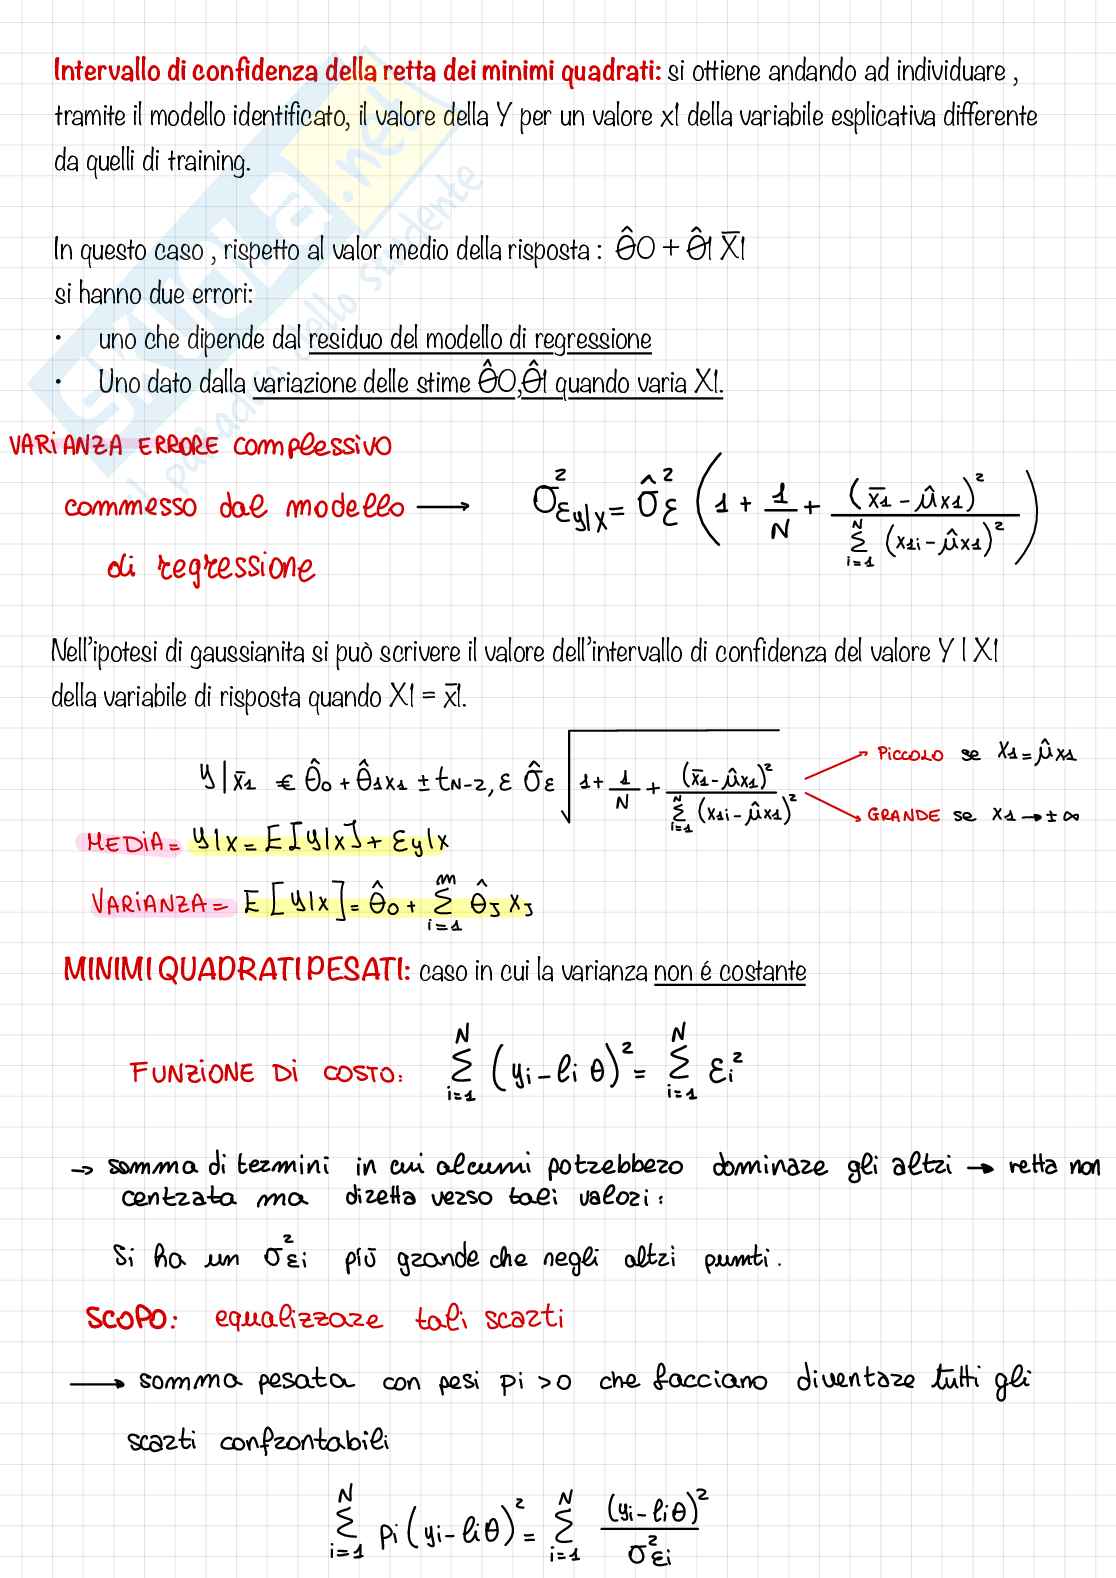 Intervallo di confidenza della retta dei minimi quadrati: si ottiene andando ad individuare ,
tramite il modello identificato, il valore della Y per un valore x1 della variabile esplicativa differente
da quelli di training.
In questo caso , rispetto al valor medio della risposta : θ̂0 + θ̂1 X̄1
si hanno due errori:
• uno che dipende dal residuo del modello di regressione
• Uno dato dalla variazione delle stime θ̂0,θ̂1 quando varia X1.
VARIANZA ERRORE complessivo
commesso dal modello → σ²εy|x = σ̂²ε (1 + 1/N + (x̄1 - μ̂x1)² / Σ i=1 N (x1i - μ̂x1)²)
di regressione
Nell'ipotesi di gaussianita si può scrivere il valore dell'intervallo di confidenza del valore Y | X1
della variabile di risposta quando X1 = x̄1.
y|x̄1 € θ̂0 + θ̂1x1 ± tN-2, ε σ̂ε √(1 + 1/N + (x̄1 - μ̂x1)² / Σ i=1 N (x1i - μ̂x1)²)
PICCOLO se x1 = μ̂x1
GRANDE se x1 → ± ∞
MEDIA = y|x = E[y|x] + εy|x
VARIANZA = E[y|x] = θ̂0 + Σ i=1 m θ̂J xJ
MINIMI QUADRATI PESATI: caso in cui la varianza non é costante
FUNZIONE DI COSTO: Σ i=1 N (yi - li θ)² = Σ i=1 N εi²
→ somma di termini in cui alcuni potrebbero dominare gli altri → retta non
centrata ma diretta verso tali valori:
Si ha un σ²εi più grande che negli altri punti.
SCOPO: equalizzare tali scarti
→ somma pesata con pesi pi >0 che facciano diventare tutti gli
scarti confrontabili
Σ i=1 N pi (yi - liθ)² = Σ i=1 N (yi - liθ)² / σ²εi
SKUOLA.net
il paradiso dello studente